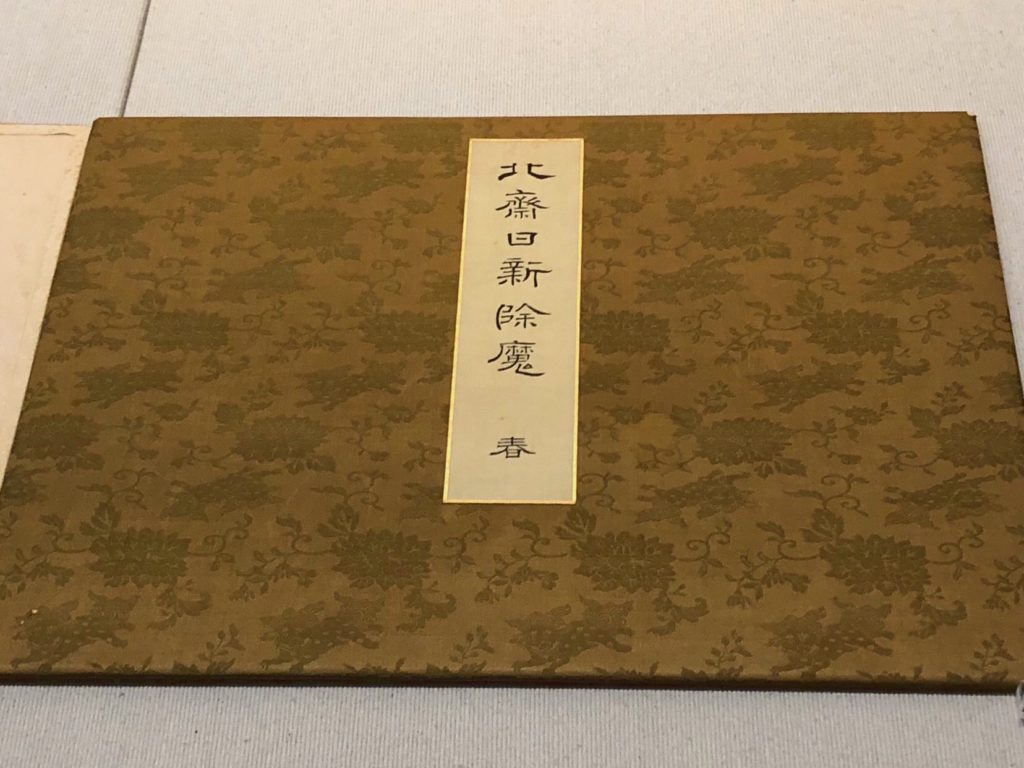 北齋日新除魔 春